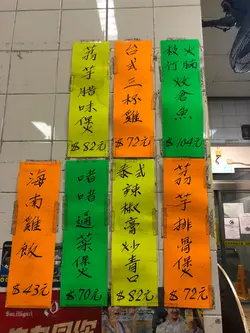 荔芋腊味煲
$82元
台式三杯雞
$72元
火腩炆倉魚
$104元
海南雞飯
$43元
啫啫通菜煲
$70元
泰式辣椒膏炒青口
$82元
荔芋排骨煲
$72元